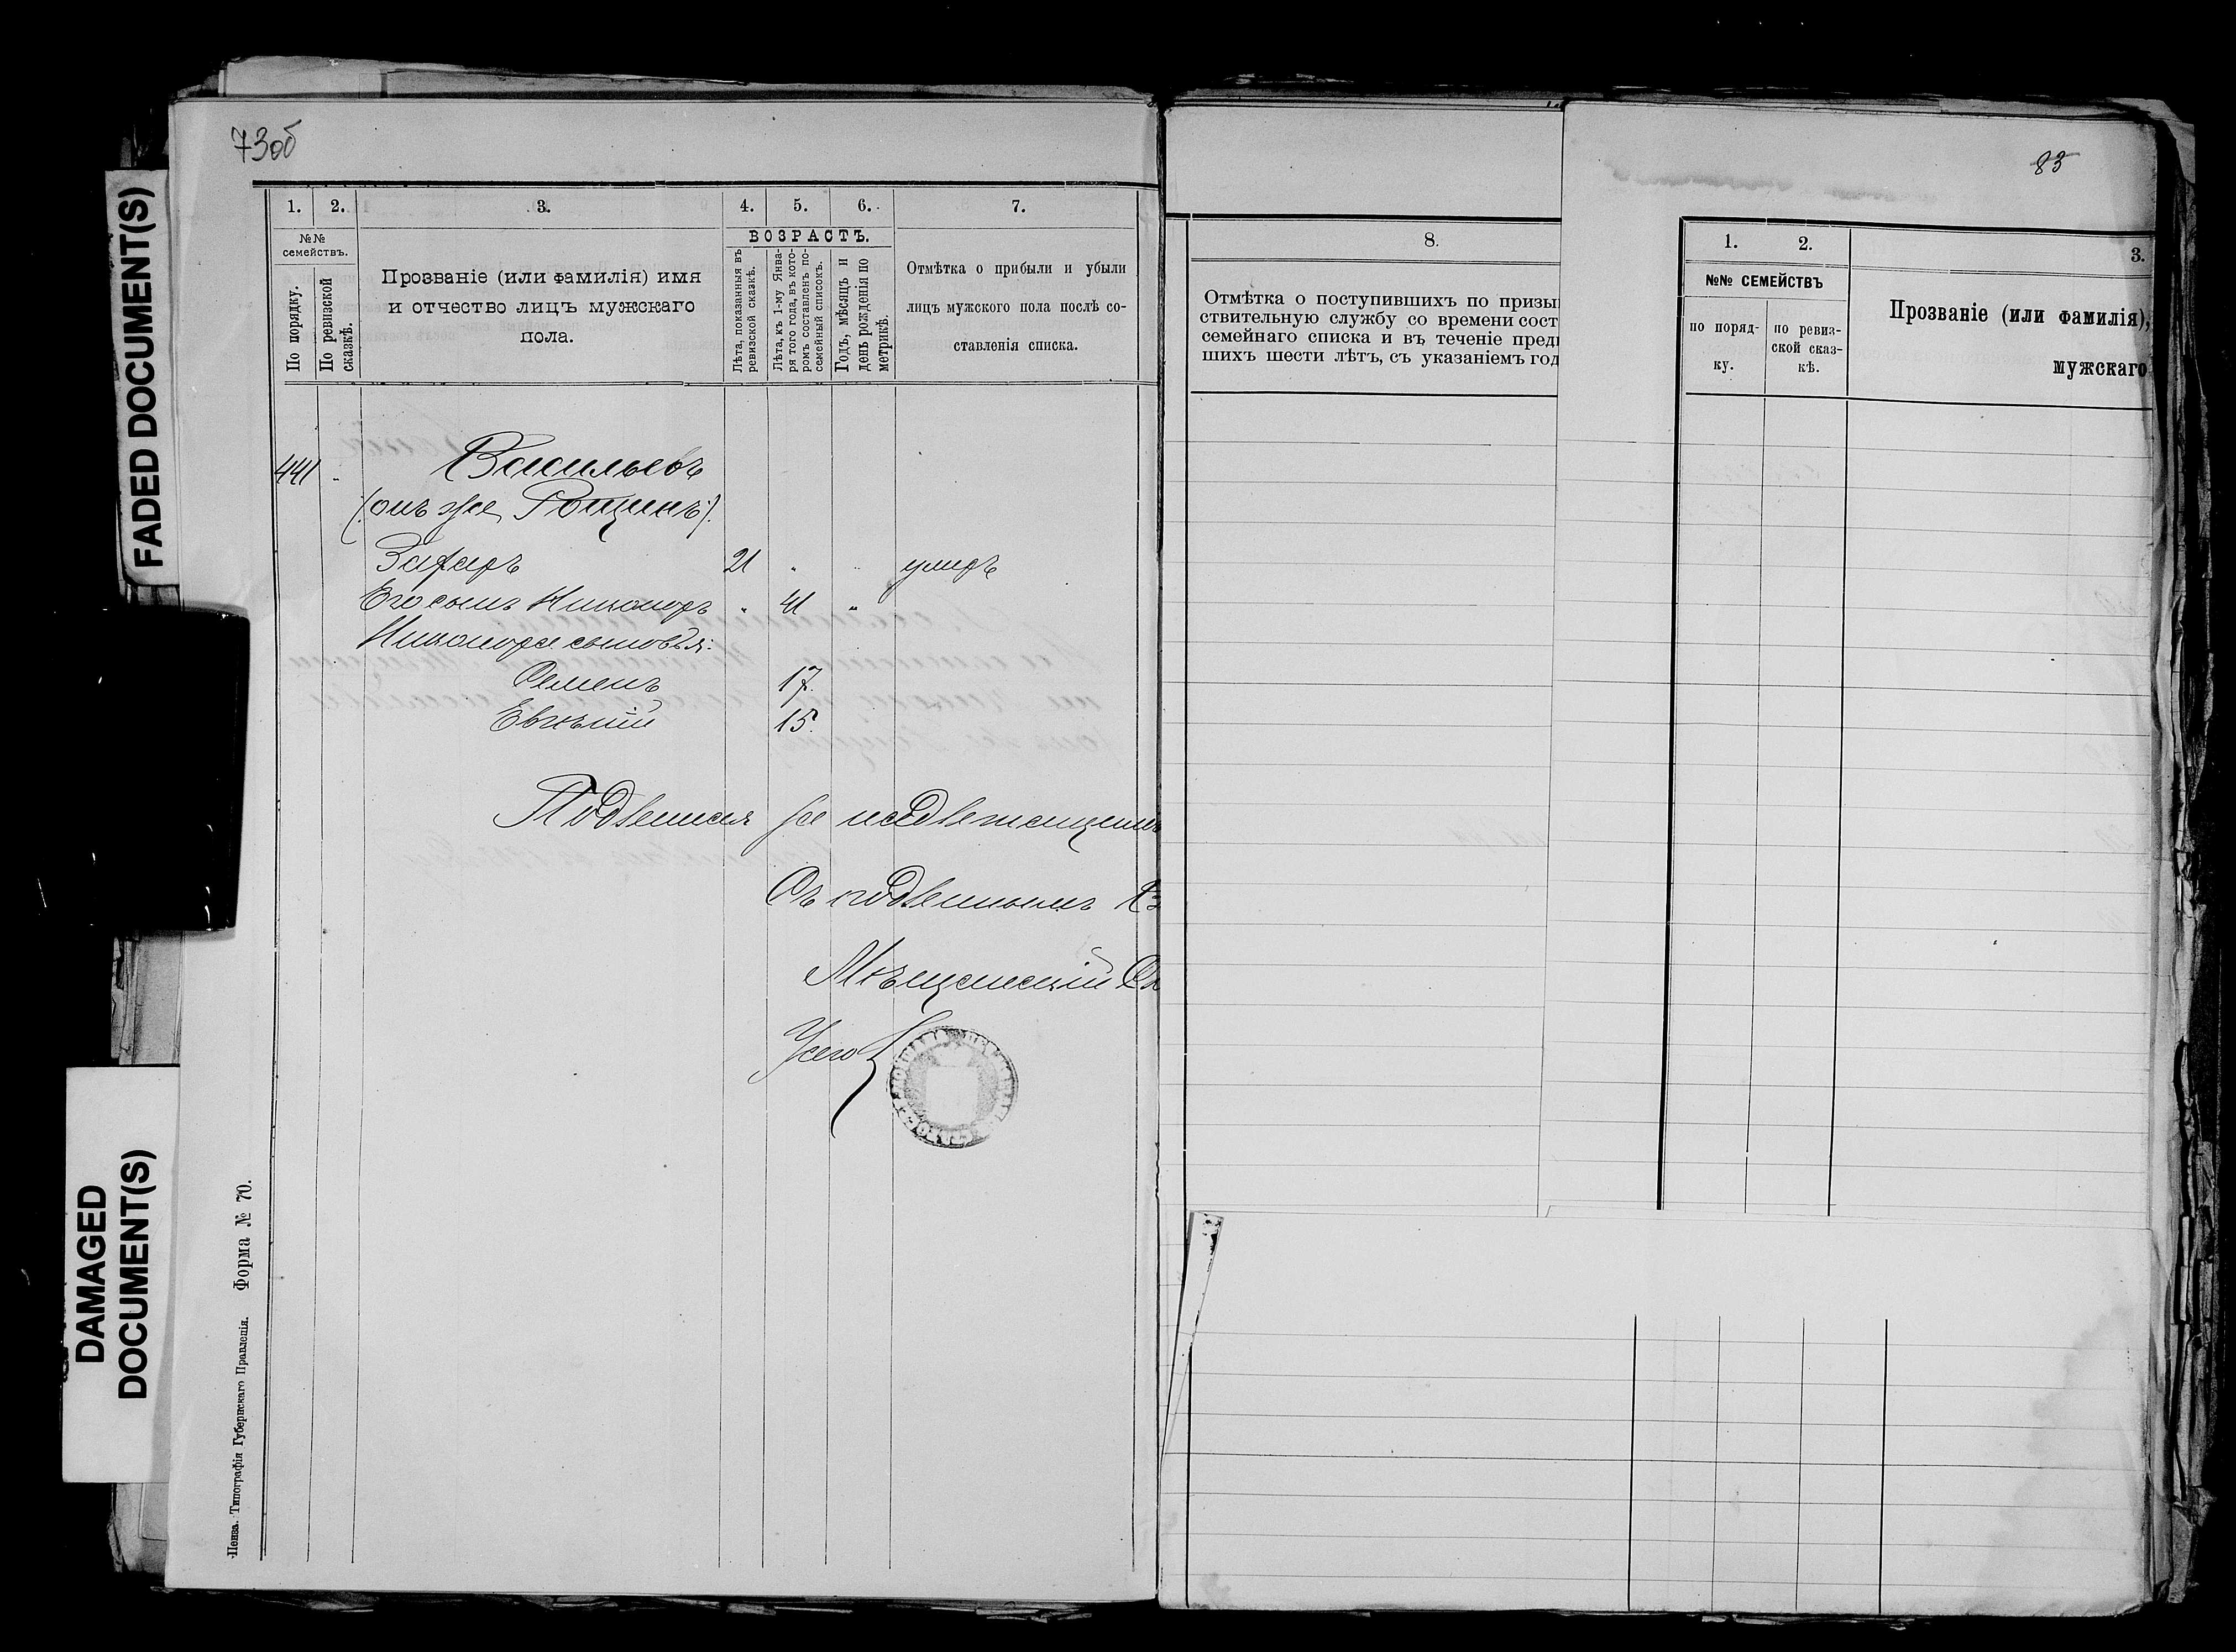 73об
1.
2.
3.
4.
5.
6.
7.
№№
семействъ.
По порядку.
По ревизской
сказкѣ.
Прозваніе (или фамилія) имя
и отчество лицъ мужскаго
пола.
ВОЗРАСТЪ.
Лѣта, показанныя въ
ревизской сказкѣ.
Лѣта, къ 1-му Янва-
ря того года, въ кото-
ромъ составленъ по-
семейный списокъ.
Годъ, мѣсяцъ и
день рожденія по
метрикѣ.
Отмѣтка о прибыли и убыли
лицъ мужского пола послѣ со-
ставленія списка.
441 Васильевъ
(онъ же Рощинъ).
Захаръ 21 умеръ
Его сынъ Никоноръ 41
Никонора сыновья:
Семенъ 17.
Евгеній 15.
Подленная за надлежащимъ
Съ подленнымъ
Мѣщанскій
Усего
Пенза. Типографія Губернскаго Правленія. Форма № 70.
FADED DOCUMENT(S)
DAMAGED
DOCUMENT(S)
8.
Отмѣтка о поступившихъ по призы
ствительную службу со времени сост
семейнаго списка и въ теченіе пред
шихъ шести лѣтъ, съ указаніемъ год
83
1.
2.
3.
№№ СЕМЕЙСТВЪ
по поряд-
ку.
по ревиз-
ской сказ-
кѣ.
Прозваніе (или фамилія),
мужскаго